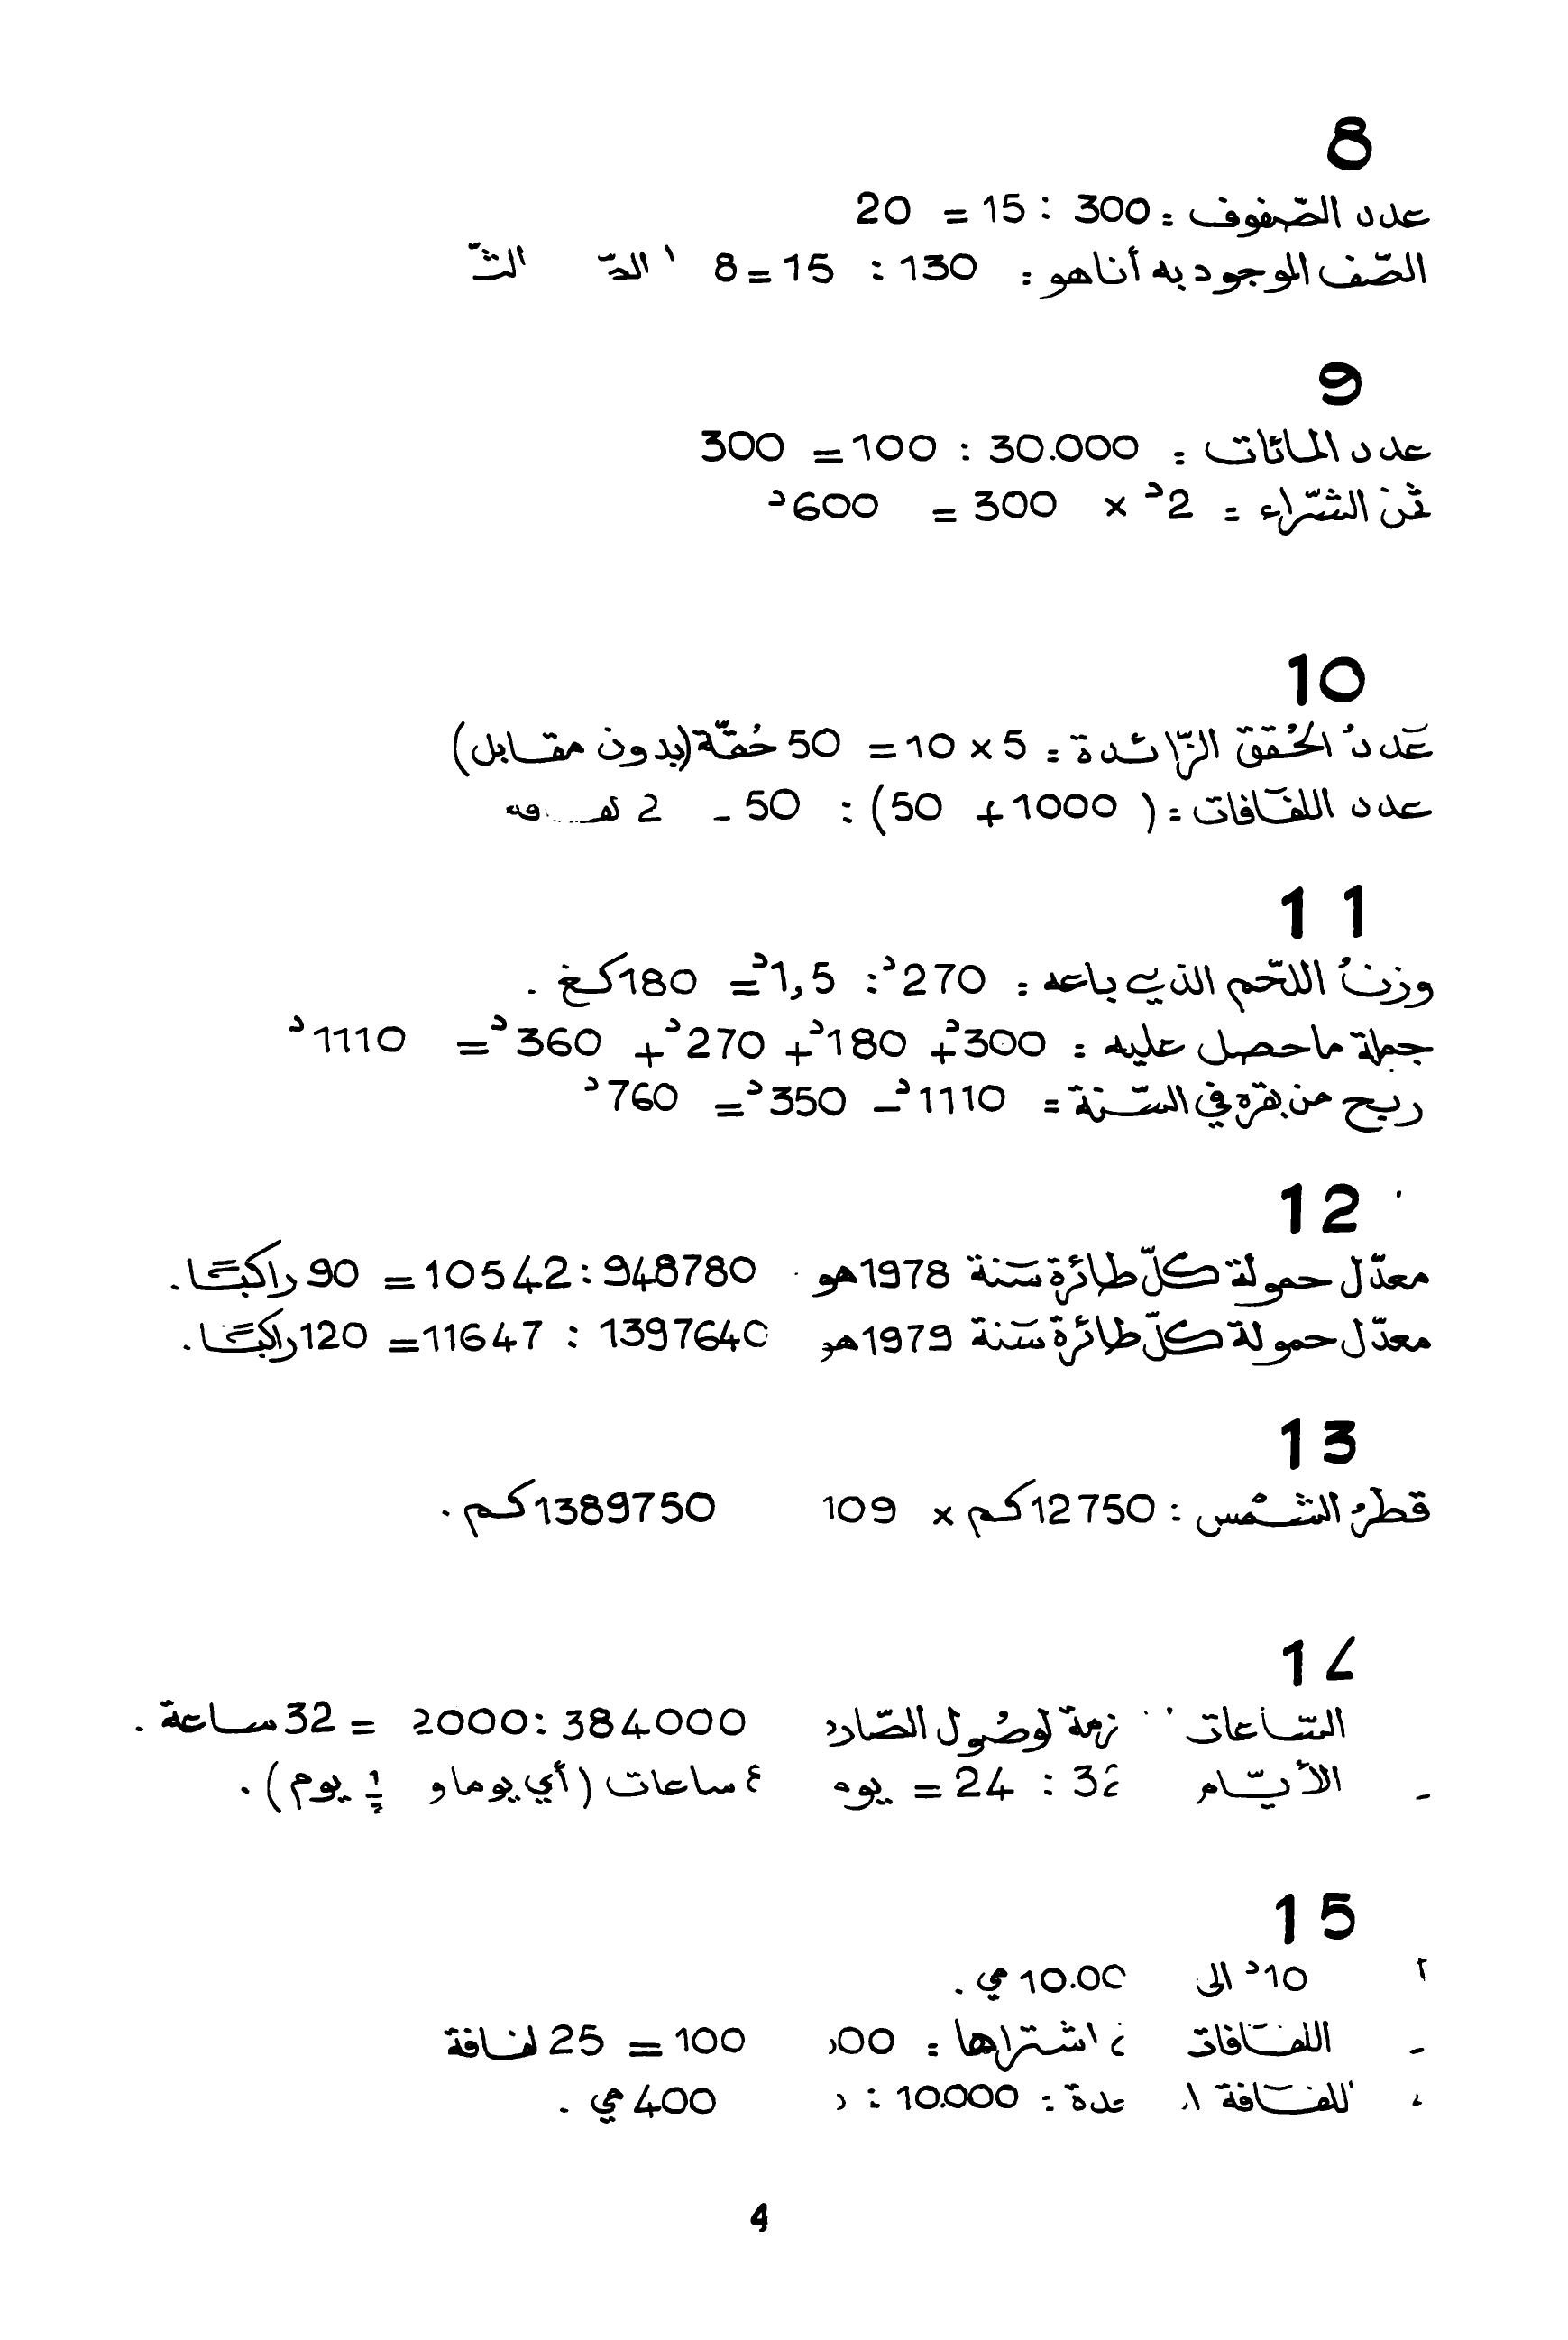 8
عدد الصّفوف = 300 : 15 = 20
الصّف الموجود به أنا هو = 130 : 15 = 8
9
عدد المائات = 30.000 : 100 = 300
ثمن الشّراء = 2د × 300 = 600د
10
عَددُ الحُقق الزّائدة = 5 × 10 = 50 حُقّة (بدون مقابل)
عدد اللفّافات = ( 1000 + 50) : 50 - 2
11
وزنُ اللّحم الذي باعه = 270د : 1,5د = 180كغ .
جملة ما حصل عليه = 300د + 180د + 270د + 360د = 1110د
ربح من بقره في السّنة = 1110د – 350د = 760د
12
معدّل حمولة كلّ طائرة سَنة 1978 هو 948780 : 10542 = 90 راكبًا .
معدّل حمولة كلّ طائرة سَنة 1979 هو 1397640 : 11647 = 120 راكبًا .
13
قطرُ الشّمس : 12750 كم × 109 1389750 كم .
14
السّاعات لوصُول 384000 : 2000 = 32 ساعة .
- الأيّام : 24 = ساعات (أي يوما و يوم) .
15
10د الى 10.00 مي .
- اللفّافات اشتراها = 100 = 25 لفافة
للفّافة = 10.000 : 400 مي .
4